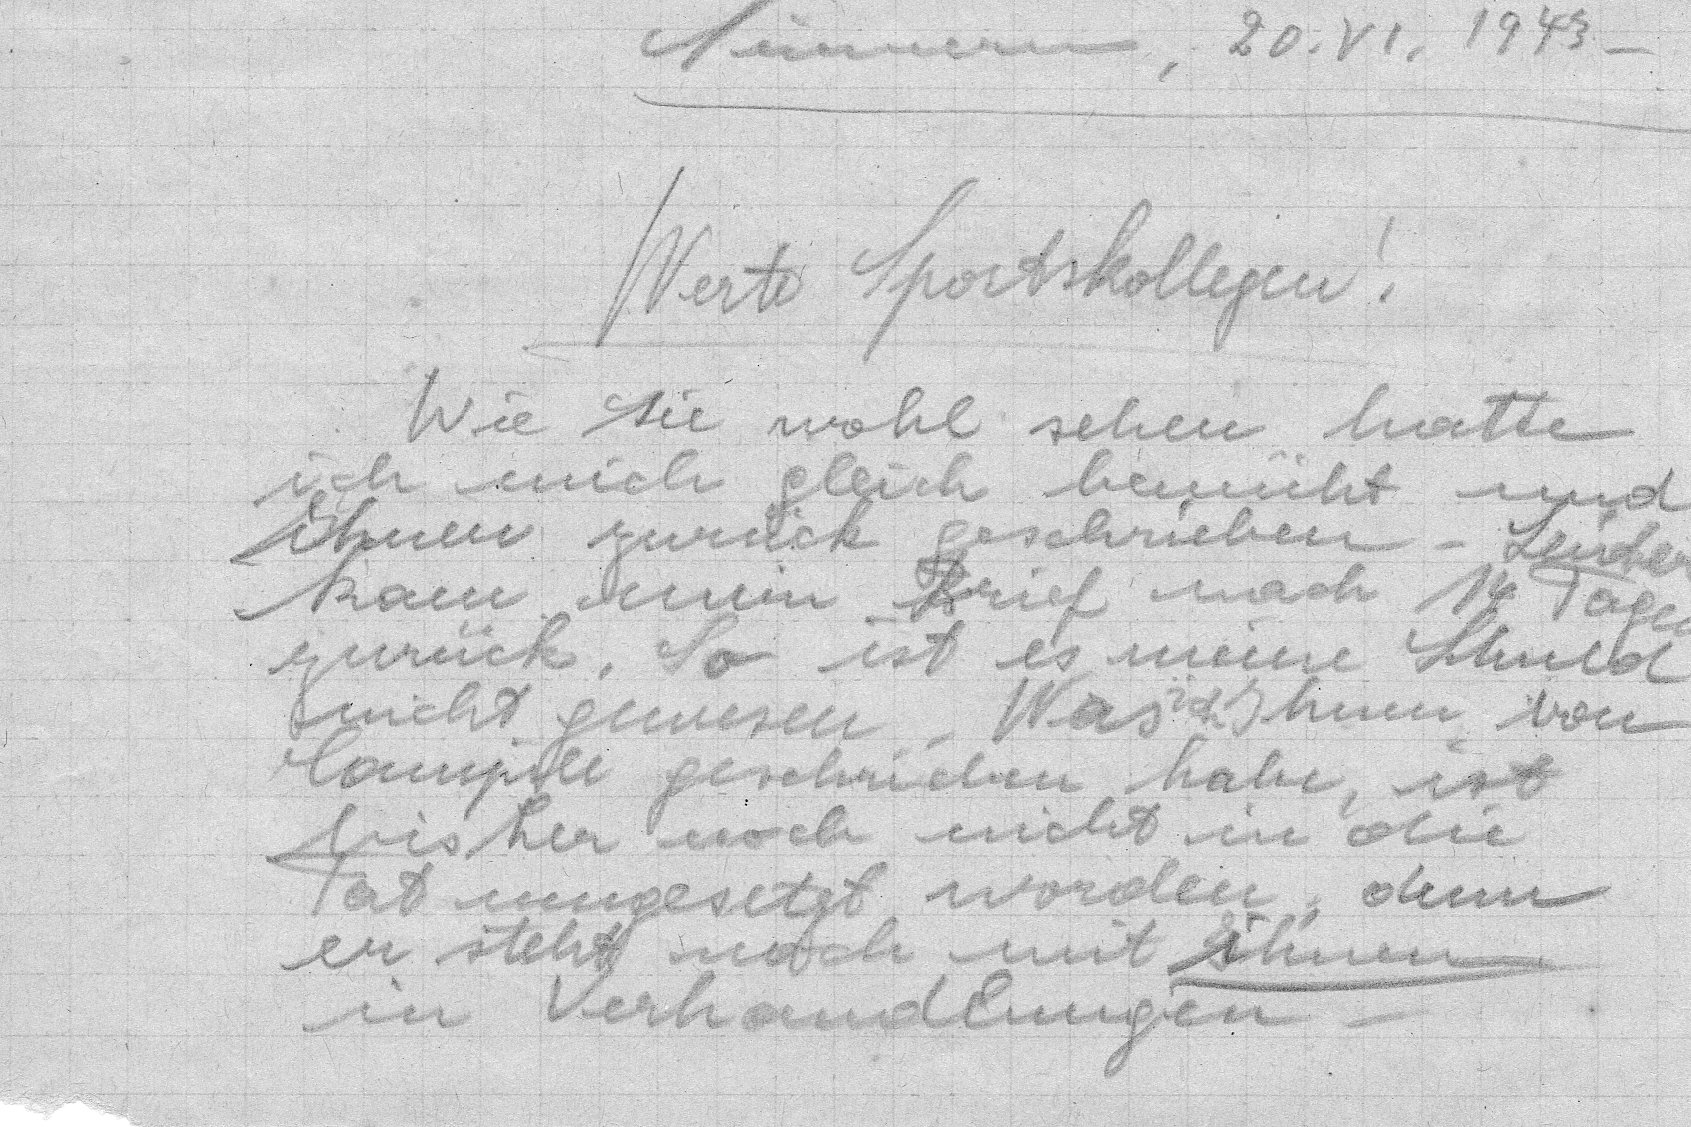 , 20. VI. 1943 –
Werte Sportskollegen!
Wie Sie wohl sehen hatte
ich mich gleich bemüht und
Ihnen zurück geschrieben – Leider
kam mein Brief nach 14 Tagen
zurück. So ist es meine Schuld
nicht gewesen. Was ich Ihnen von
geschrieben habe, ist
bisher noch nicht in die
Tat umgesetzt worden, denn
er steht noch mit Ihnen
in Verhandlungen –